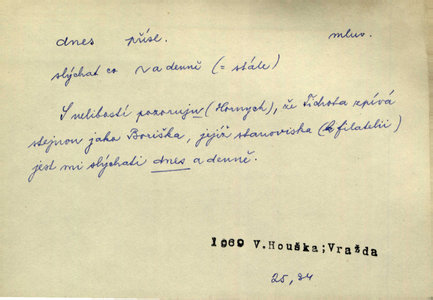 dnes přísl. mluv.
slýchat co ~ a denně (= stále)
S nelibostí pozoruju (Horných), že Lichota zpívá
stejnou jako Boriška, jejíž stanoviska (k filatelii)
jest mi slýchati dnes a denně.
1969 V.Houška;Vražda
25, 34